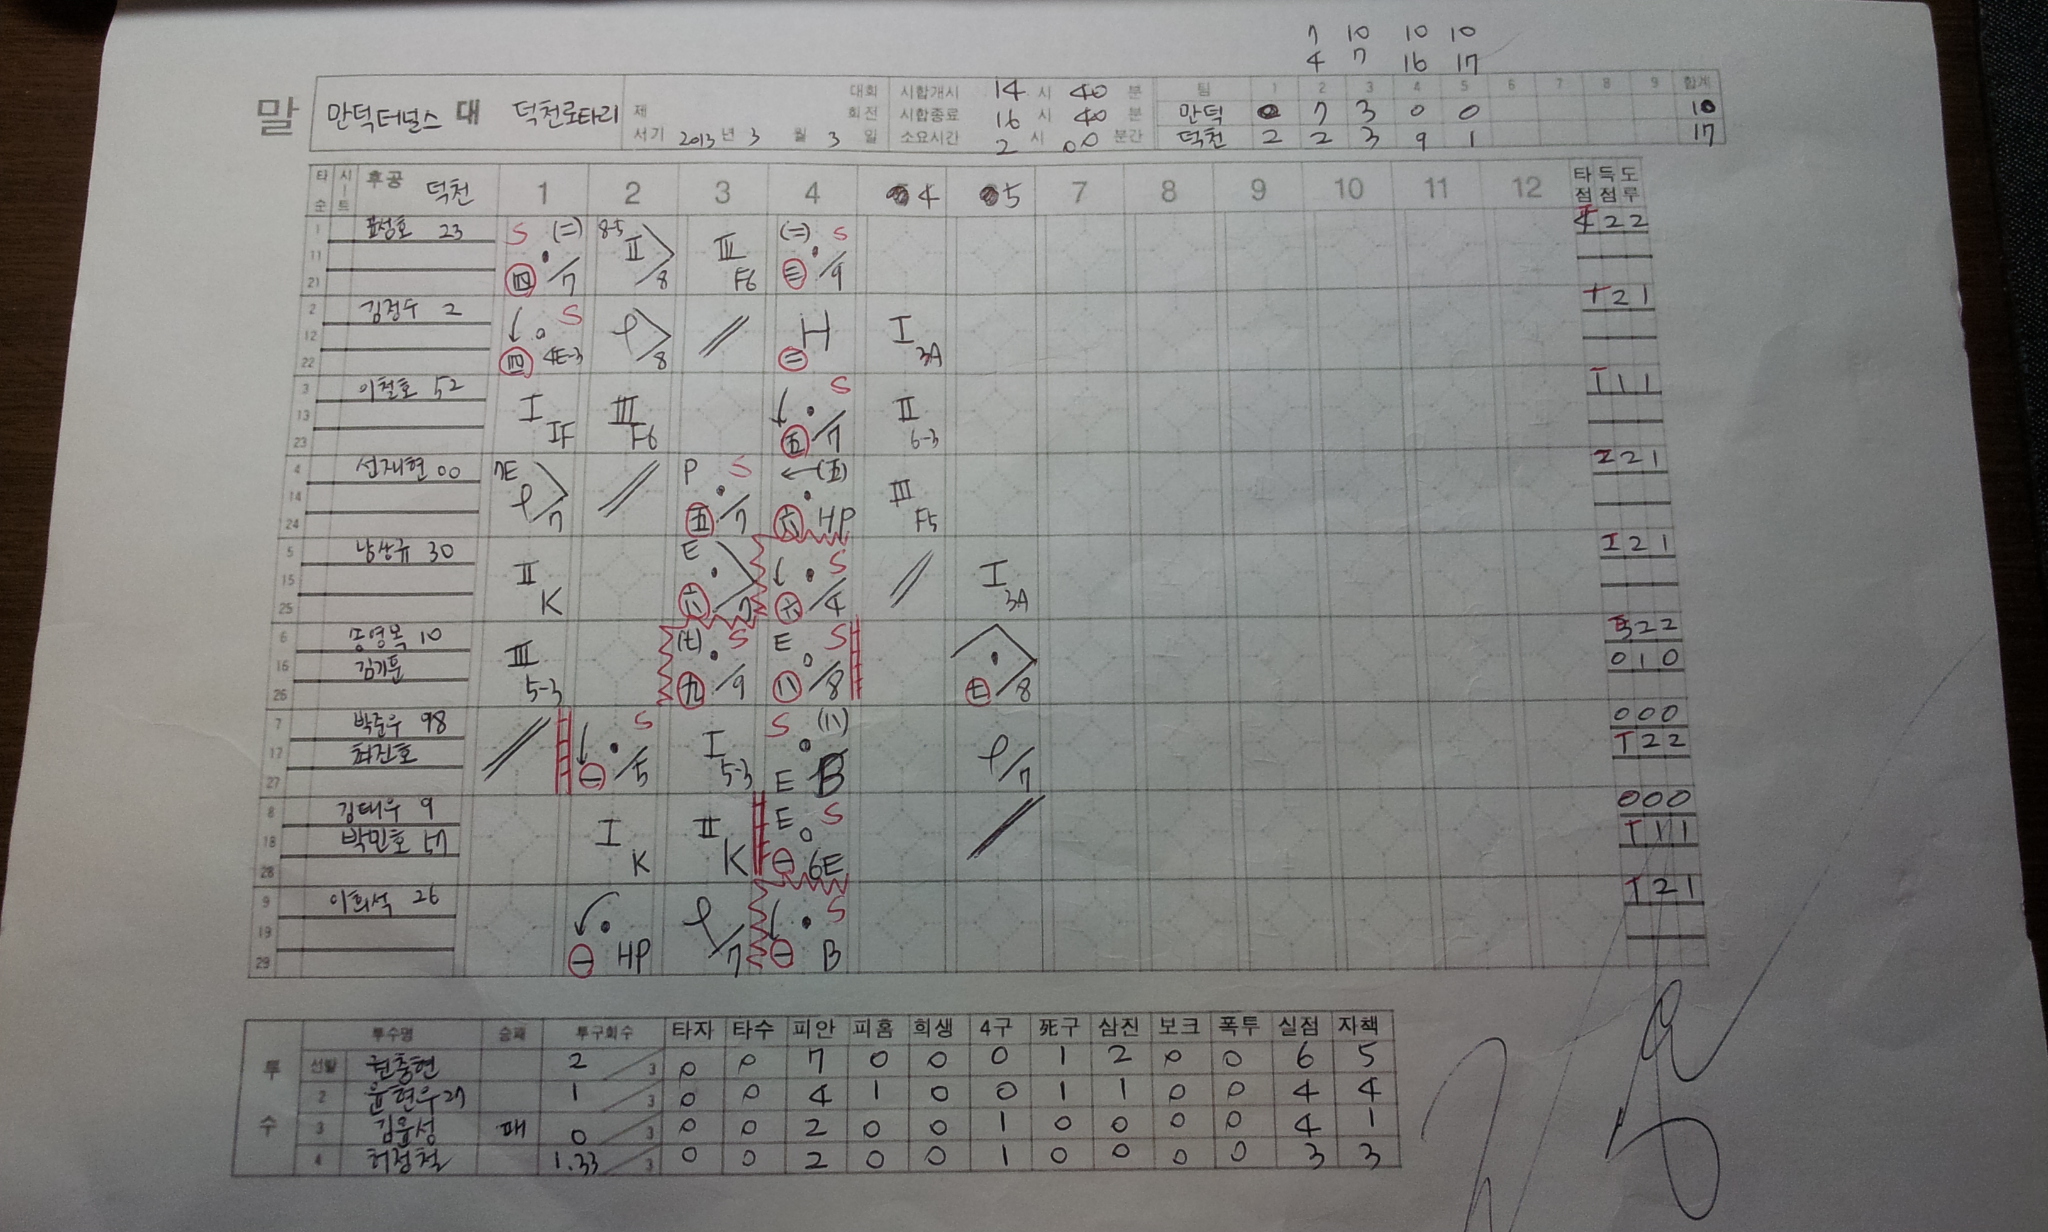 7 10 10 10
4 7 16 17
말 만덕터널스 대 덕천로타리
제 대회 회전
서기 2013 년 3 월 3 일
시합개시 14 시 40 분
시합종료 16 시 40 분
소요시간 2 시 00 분간
팀 1 2 3 4 5 6 7 8 9 합계
만덕 0 7 3 0 0 10
덕천 2 2 3 9 1 17
타순 시트 후공 덕천 1 2 3 4 4 5 7 8 9 10 11 12 타점 득점 도루
1 23 S (二) 8-5 II III (二) S 22
11
21 四 /7 /8 F6 三 /9
2 김정수 2 S H I 21
12
22 四 4E-3 /8 二 3A
3 이철호 52 I III S II 11
13
23 IF F6 五 /7 6-3
4 선재현 00 7E P S (五) III 21
14
24 /7 五 /7 六 HP F5
5 30 II E S I 21
15
25 K 六 /7 六 /4 3A
6 10 III (七) S E S 22
16 김기훈 010
26 5-3 九 /9 八 /8 七 /8
7 박준우 98 S I S (八) 000
17 최진호 22
27 一 /5 5-3 E B /7
8 김태우 9 I II E S 000
18 박민호 57 11
28 K K 一 6E
9 이희석 26 S 21
19
29 一 HP /7 一 B
투수 투수명 승패 투구회수 타자 타수 피안 피홈 희생 4구 死구 삼진 보크 폭투 실점 자책
선발 권충현 2 /3 0 0 7 0 0 0 1 2 0 0 6 5
2 윤현우27 1 /3 0 0 4 1 0 0 1 1 0 0 4 4
3 김윤성 패 0 /3 0 0 2 0 0 1 0 0 0 0 4 1
4 허정철 1.33 /3 0 0 2 0 0 1 0 0 0 0 3 3